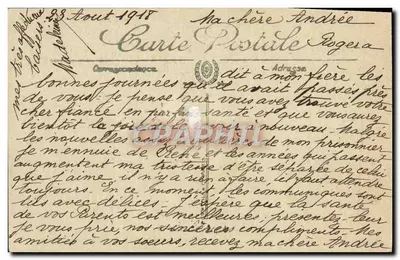 23 Aout 1918
Ma chère Andrée
Carte Postale
Correspondance
Adresse
Rogera
dit à mon frère les
bonnes journées qu'il avait passées près
de vous. Je pense que vous avez trouvé votre
cher fiancé en parfaite santé et que vous aurez
bientôt la joie de nouveau. Malgré
les nouvelles de mon prisonnier
je m'ennuie de René et les années qui passent
augmentent ma tristesse d'être séparée de celui
que j'aime il n'y a rien à faire il faut attendre
toujours. En ce moment les communiqués sont
lus avec délices. J'espère que la santé
de vos Parents est meilleure, présentez-leur
je vous prie, nos sincères compliments. Mes
amitiés à vos soeurs, recevez ma chère Andrée
mes très affectueux
baisers